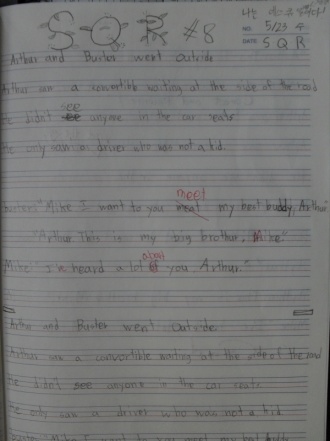 S Q R #8
나는
NO. 5/23 4
DATE S Q R
Arthur and Buster went Outside
Arthur saw a convertible waiting at the side of the road
see
He didn't see anyone in the car seats
He only saw a driver who was not a kid.
meet
"Mike I want to you meat my best buddy, Arthur"
"Arthur This is my big brother, Mike."
about
Mike" I'm heard a lot of you Arthur."
Arthur and Buster went Outside
Arthur saw a convertible waiting at the side of the road
He didn't see anyone in the car seats
He only saw a driver who was not a kid